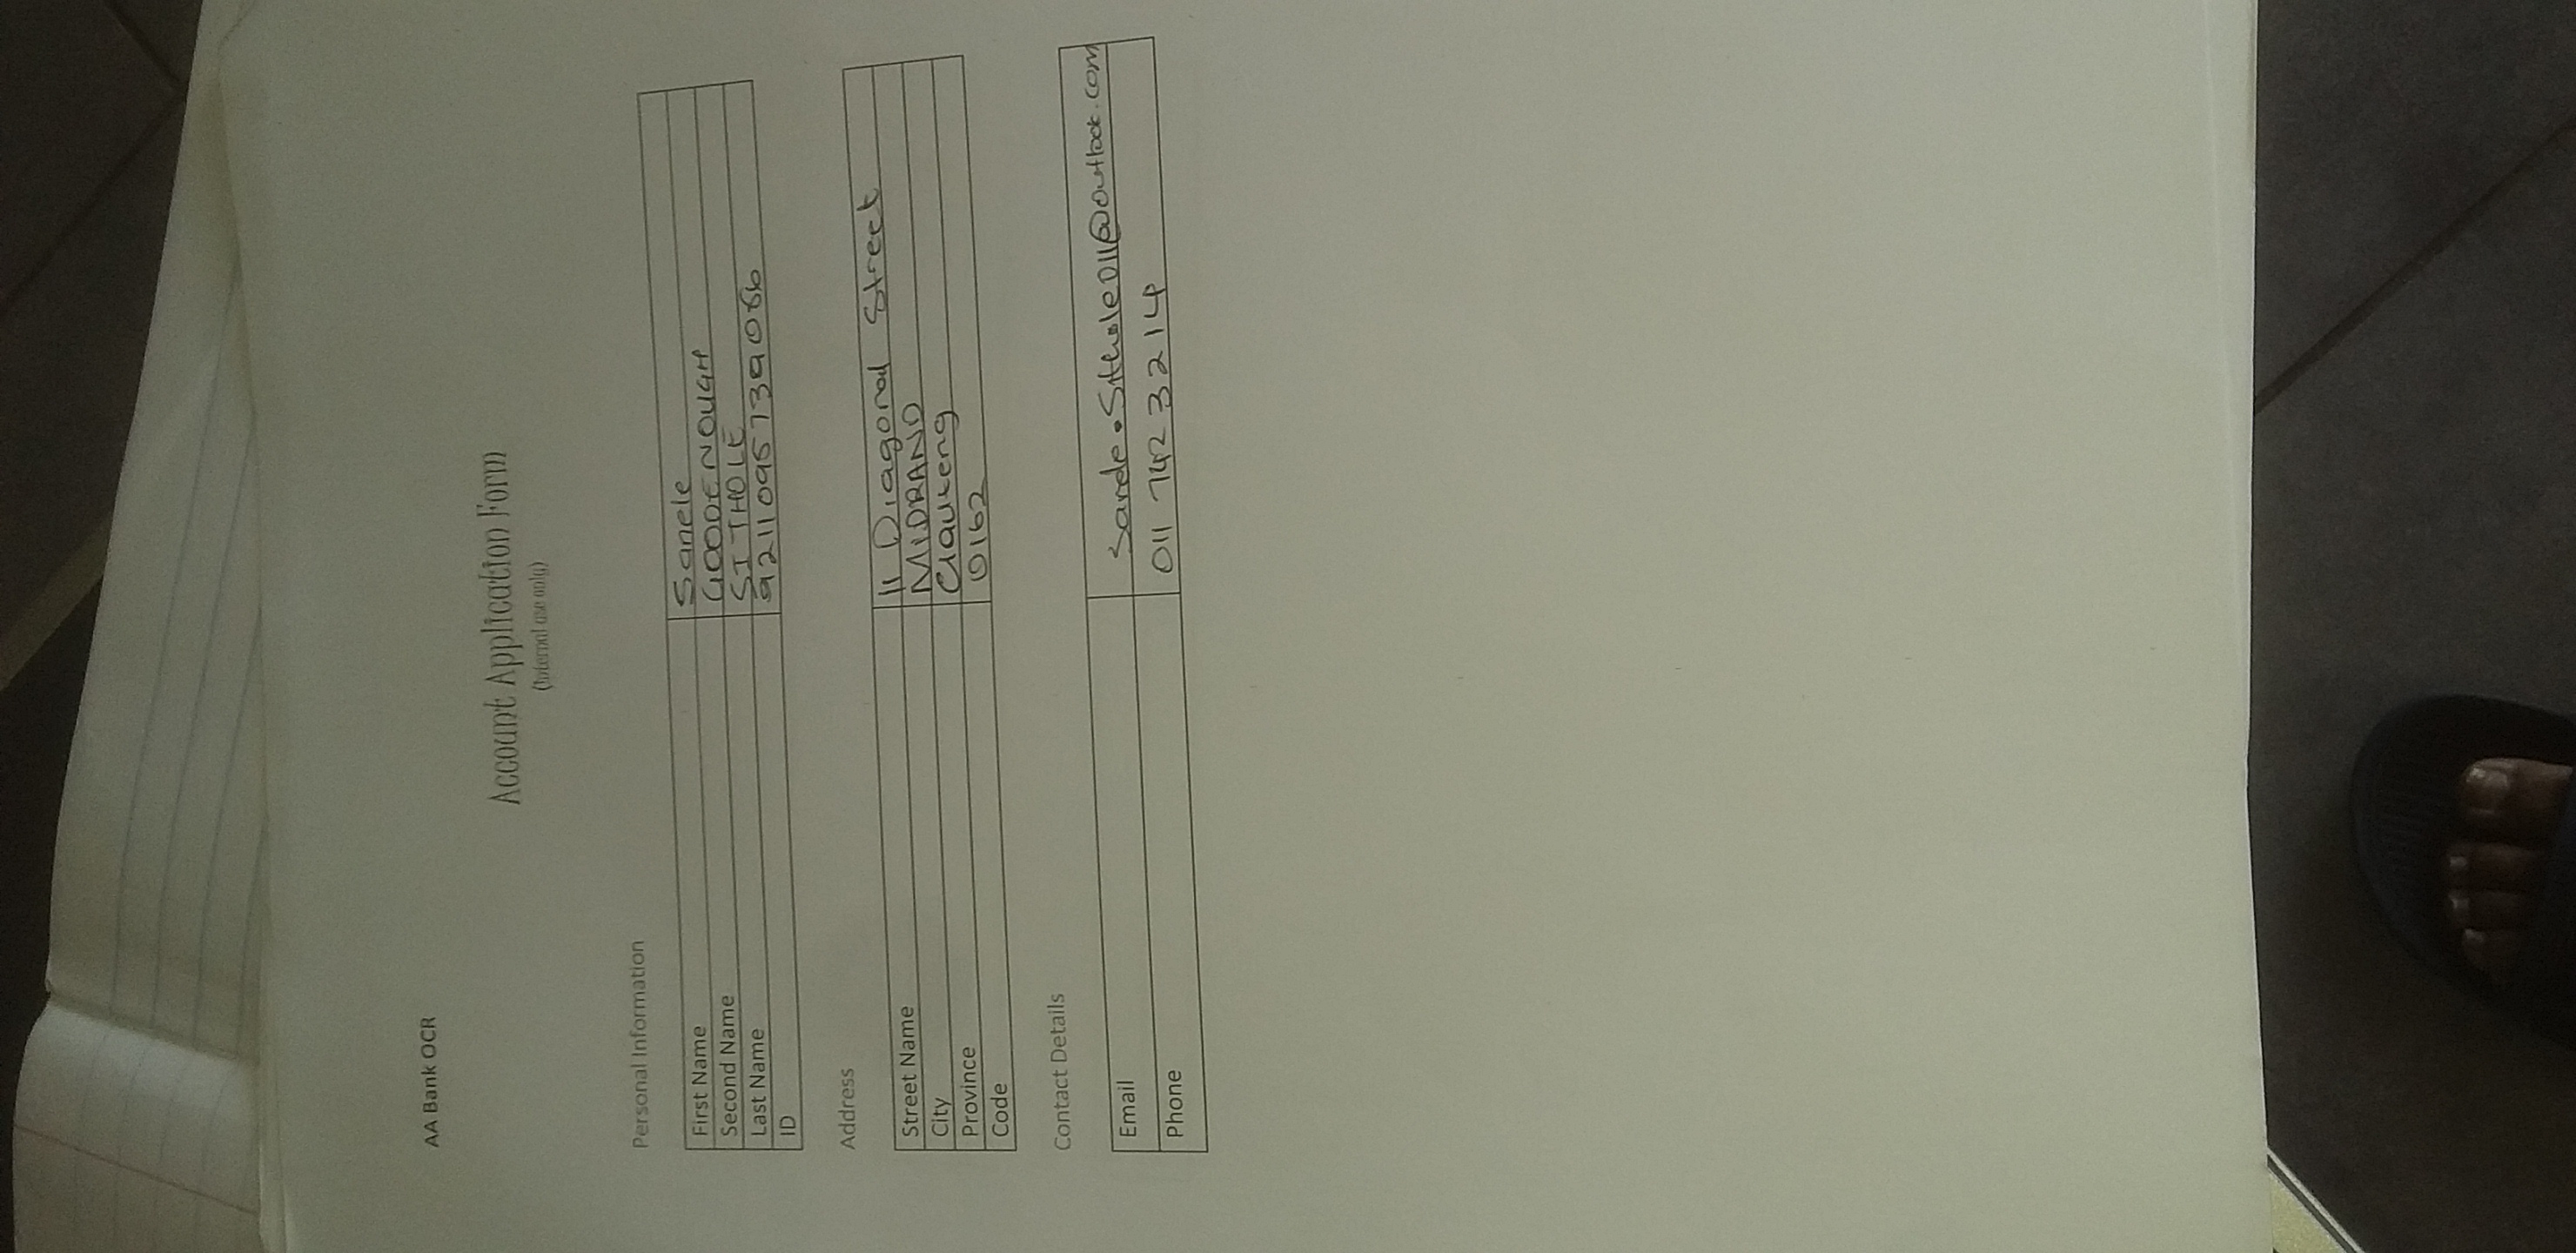 AA Bank OCR
Account Application Form
(Internal use only)
Personal Information
First Name Sanele
Second Name GOODENOUGH
Last Name SITHOLE
ID 9211095739086
Address
Street Name 11 Diagonal Street
City MIDRAND
Province Gauteng
Code 0162
Contact Details
Email Sanele.Sithole011@outlook.com
Phone 011 742 3214